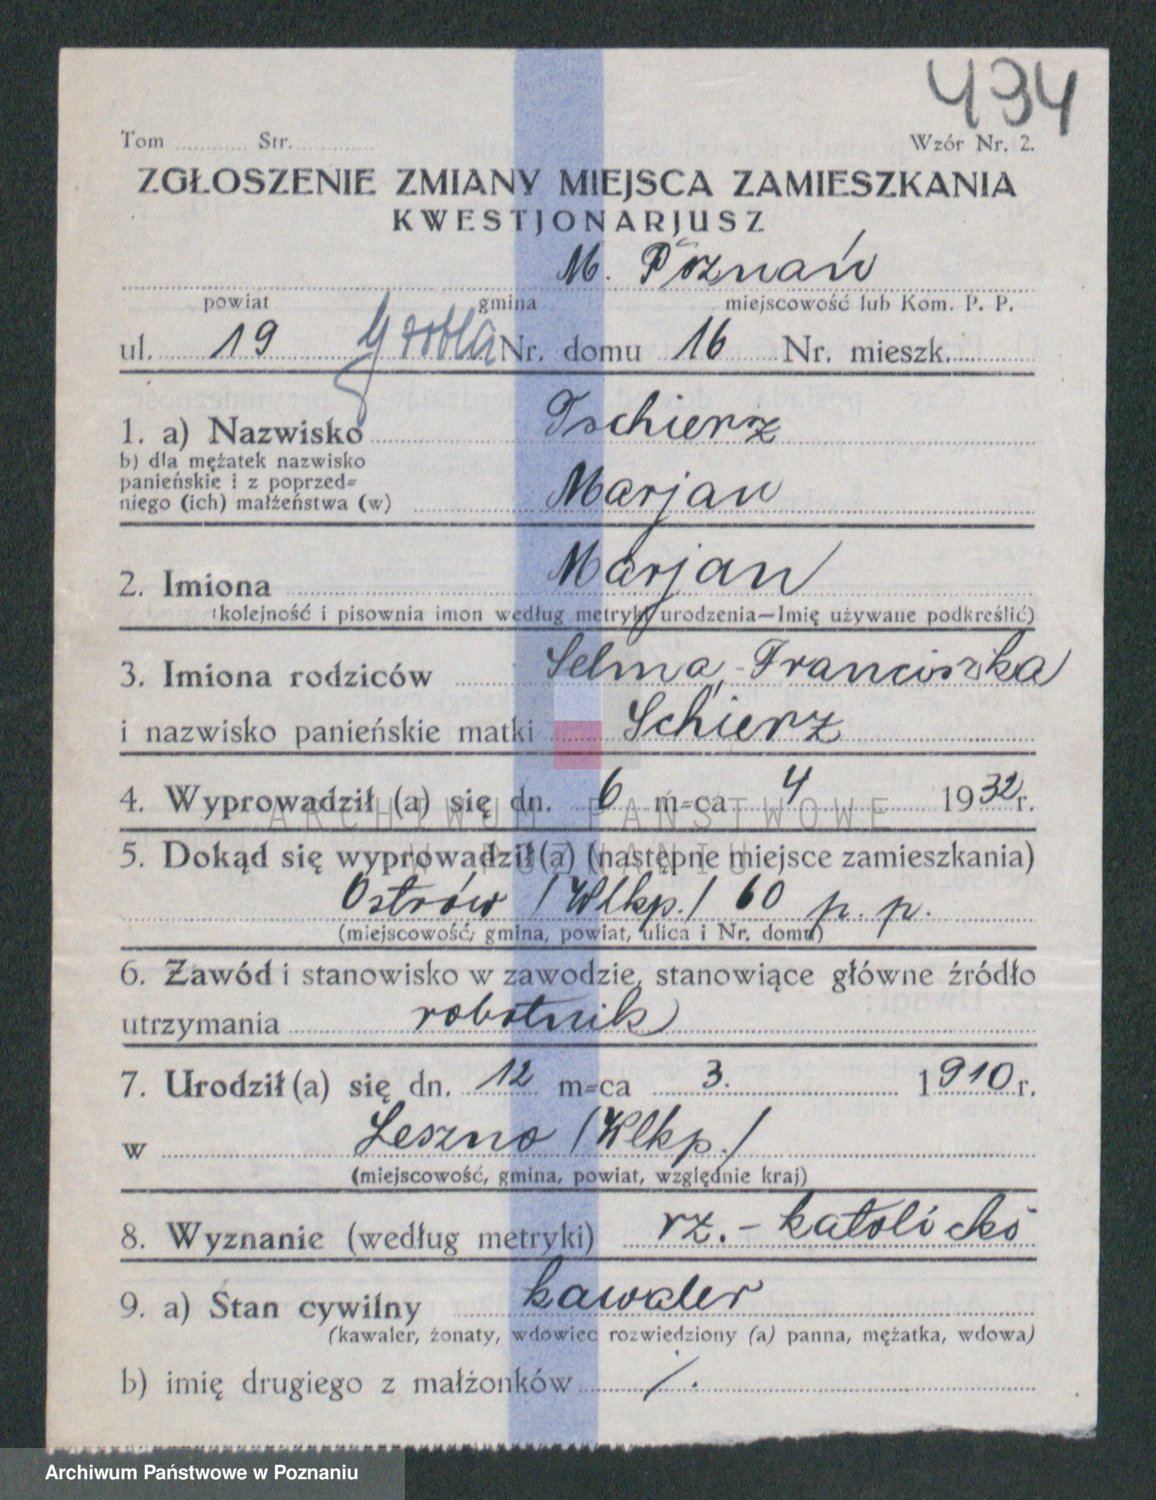 494
Tom ........... Str. ............. Wzór Nr. 2.
ZGŁOSZENIE ZMIANY MIEJSCA ZAMIESZKANIA
KWESTJONARJUSZ
M. Poznań
powiat gmina miejscowość lub Kom. P. P.
ul. 19 Grobla Nr. domu 16 Nr. mieszk.
1. a) Nazwisko Tschierz
b) dla mężatek nazwisko
panieńskie i z poprzed=
niego (ich) małżeństwa (w) Marjan
2. Imiona Marjan
(kolejność i pisownia imon według metryki urodzenia—Imię używane podkreślić)
3. Imiona rodziców Selma, Franciszka
i nazwisko panieńskie matki Schierz
4. Wyprowadził (a) się dn. 6 m=ca 4 1932 r.
ARCHIWUM PAŃSTWOWE
W POZNANIU
5. Dokąd się wyprowadził (a) (następne miejsce zamieszkania)
Ostrów /Wlkp./ 60 p. p.
(miejscowość, gmina, powiat, ulica i Nr. domu)
6. Zawód i stanowisko w zawodzie, stanowiące główne źródło
utrzymania robotnik
7. Urodził (a) się dn. 12 m=ca 3. 1910 r.
w Leszno /Wlkp./
(miejscowość, gmina, powiat, względnie kraj)
8. Wyznanie (według metryki) rz. - katolickó
9. a) Stan cywilny kawaler
(kawaler, żonaty, wdowiec rozwiedziony (a) panna, mężatka, wdowa)
b) imię drugiego z małżonków /.
Archiwum Państwowe w Poznaniu